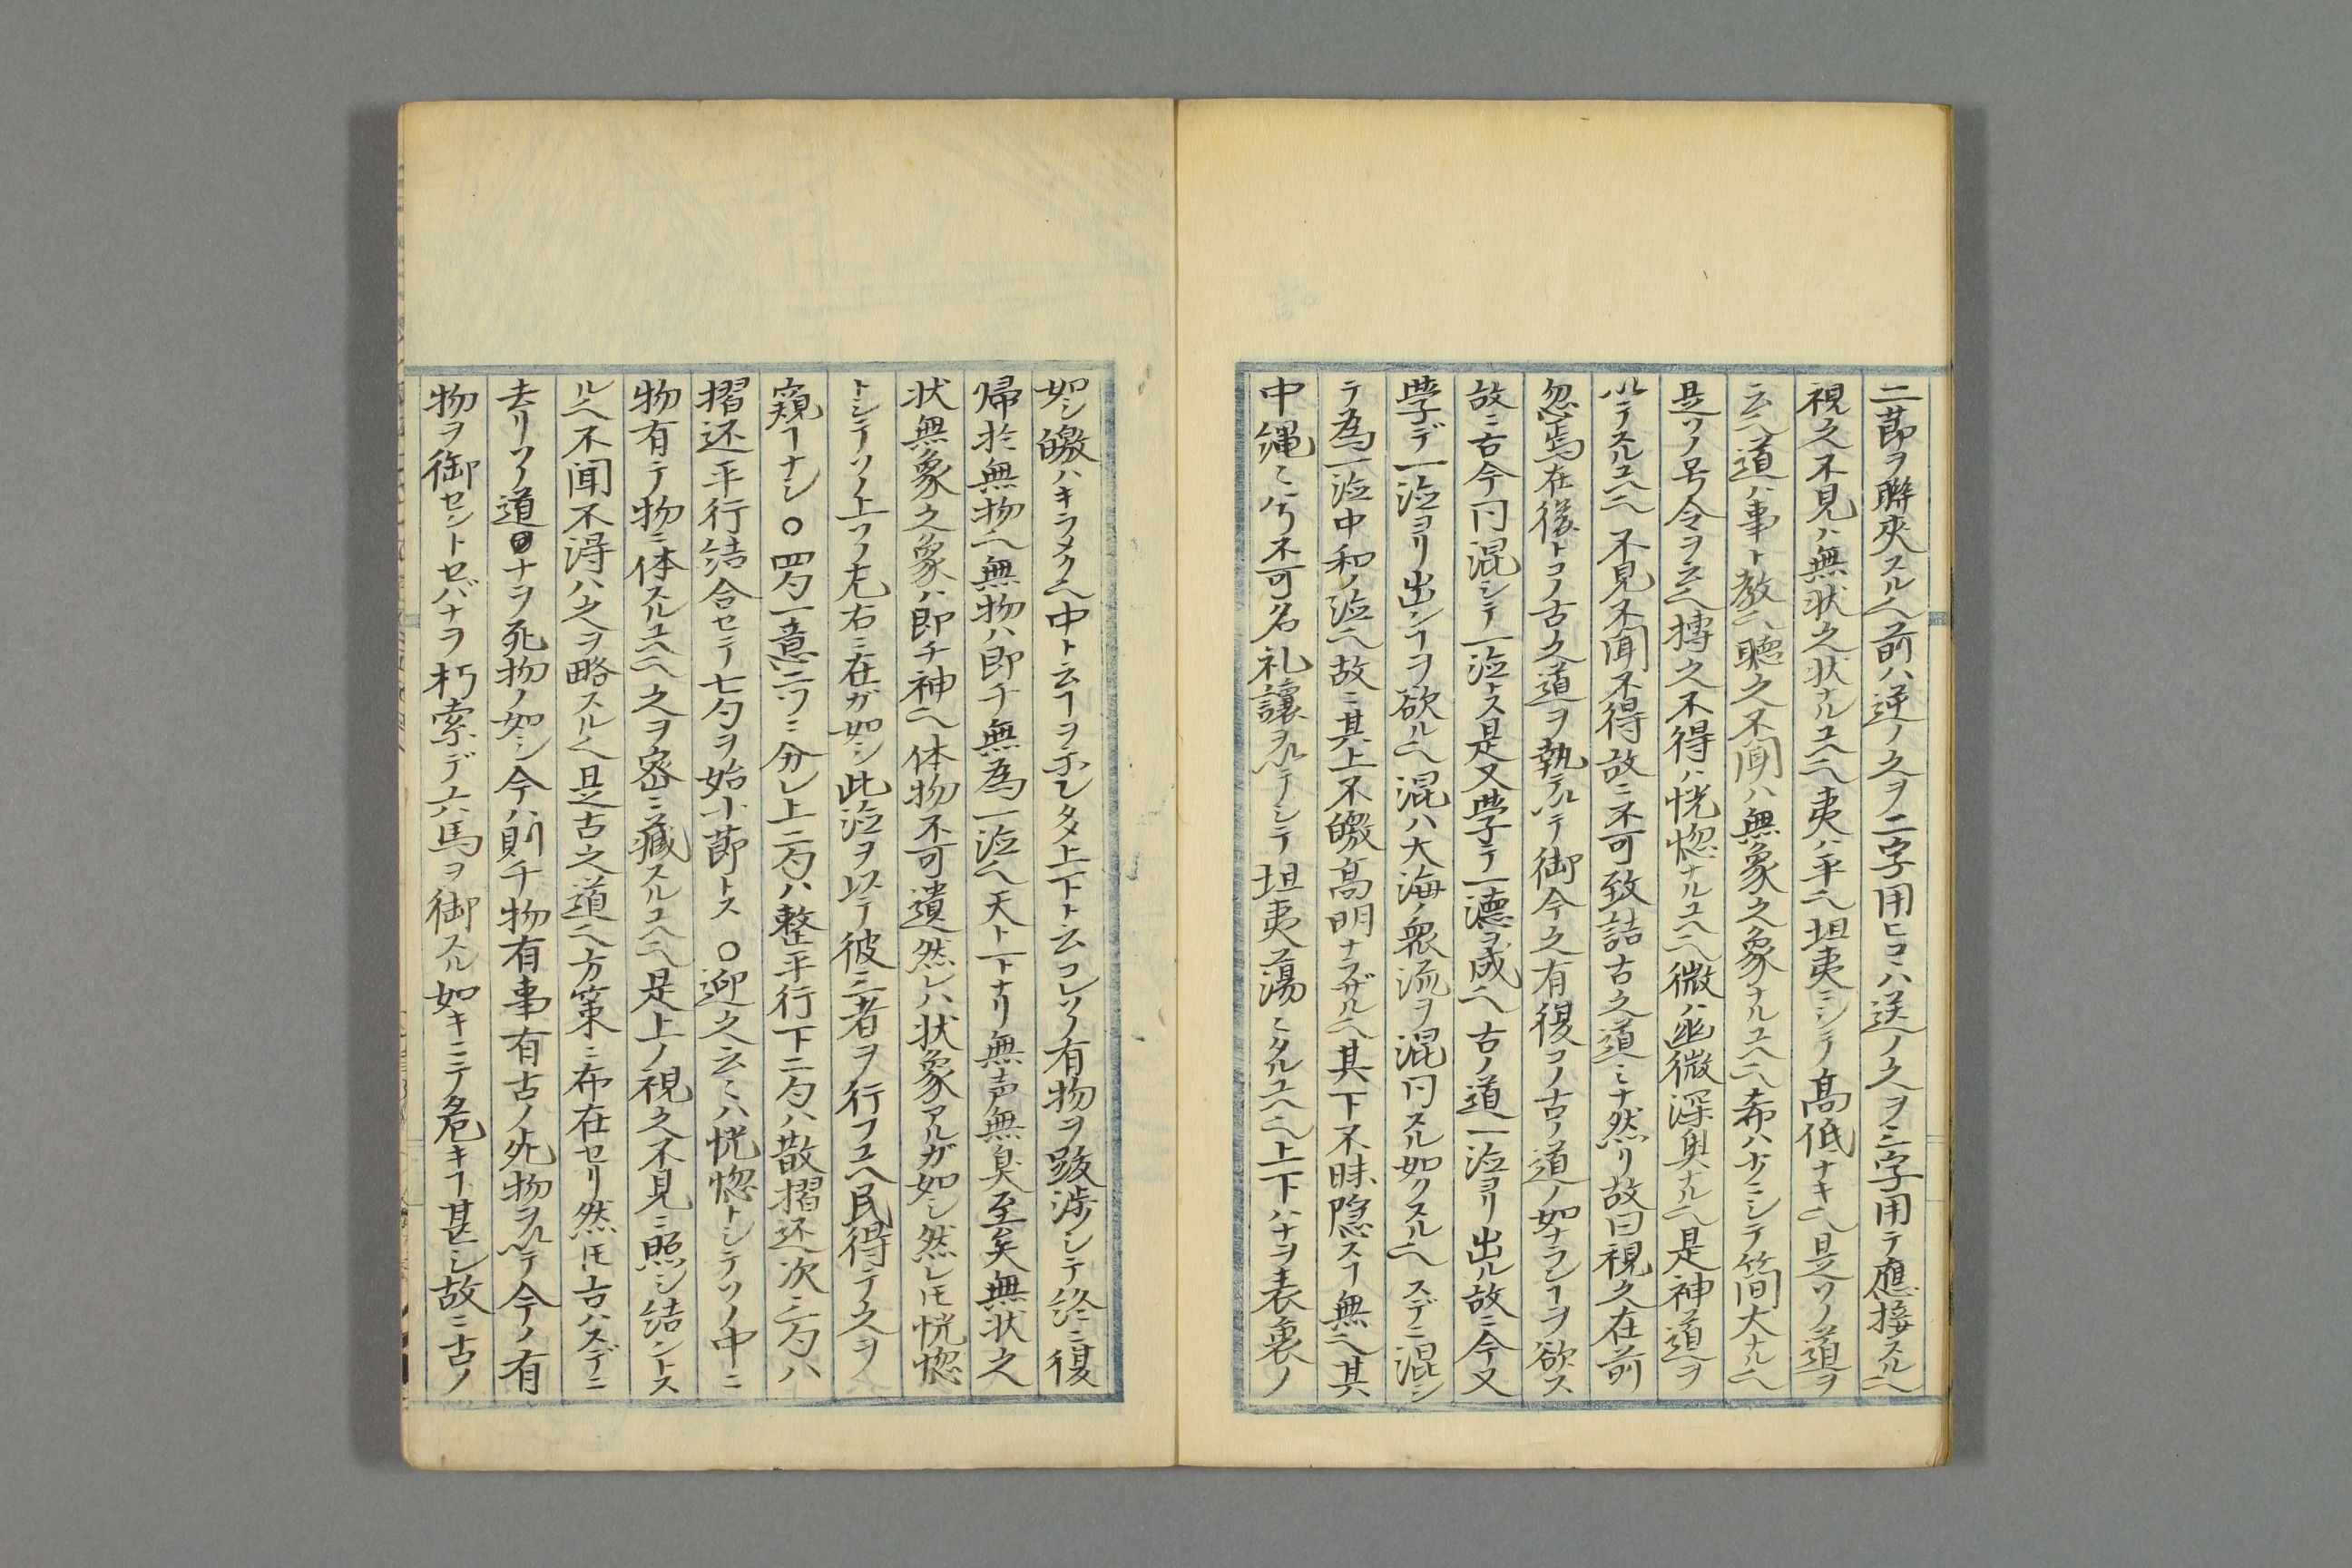 二節ヲ聯夾スル也前ハ逆ノ之ヲ二字用ヒコヽハ送ノ之ヲ三字用テ應接スル也
視之不見ハ無状之状ナルユヘ也夷ハ平也坦夷ニシテ高低ナキ也是ソノ道ヲ
云也道ハ事ト教也聴之不聞ハ無象之象ナルユヘ也希ハ少ニシテ簡大ナル也
是ソノ号令ヲ云也摶之不得ハ恍惚ナルユヘ也微ハ幽微深奥ナル也是神道ヲ
以テスルユヘ也不見不聞不得故ニ不可致詰古之道ミナ然リ故曰視之在前
忽焉在後トコノ古之道ヲ執テ以テ御今之有復コノ古ノ道ノ如ナランヿヲ欲ス
故ニ古今同混シテ一治トス是又学テ一徳ヲ成也古ノ道一治ヨリ出ル故ニ今又
學デ一治ヨリ出ンヿヲ欲ル也混ハ大海ノ衆流ヲ混同スル如クスル也スデニ混シ
テ為一治中和ノ治也故ニ其上不皦高明ナラザル也其下不昧隠スヿ無也其
中縄ミ兮不可名礼譲ヲ以テシテ坦夷蕩ミタルユヘ也上下ハナヲ表裏ノ
如シ皦ハキラメク也中ト云ヿヲ示シタメ上下ト云コレソノ有物ヲ跋渉シテ終ニ復
帰於無物也無物ハ即チ無為一治也天ト一トナリ無声無臭至矣無状之
状無象之象ハ即チ神也体物不可遺然レハ状象アルガ如シ然レ𪜈恍惚
トシテソノ上ソノ左右ニ在ガ如シ此治ヲ以テ彼三者ヲ行フユヘ民得テ之ヲ
窺ヿナシ〇四勺一意二ツニ分レ上二勺ハ整平行下二勺ハ散摺还次三勺ハ
摺还平行結合セテ七勺ヲ始小節トス〇迎之云ミハ恍惚トシテソノ中ニ
物有テ物ニ体スルユヘ也之ヲ密ニ藏スルユヘ也是上ノ視之不見ニ照シ結ントス
ル也不聞不得ハ之ヲ略スル也是古之道也方策ニ布在セリ然𪜈古ハスデニ
去リソノ道ナヲ死物ノ如シ今ハ則チ物有事有古ノ死物ヲ以テ今ノ有
物ヲ御セントセバナヲ朽索デ六馬ヲ御スル如キニテ危キヿ甚シ故ニ古ノ